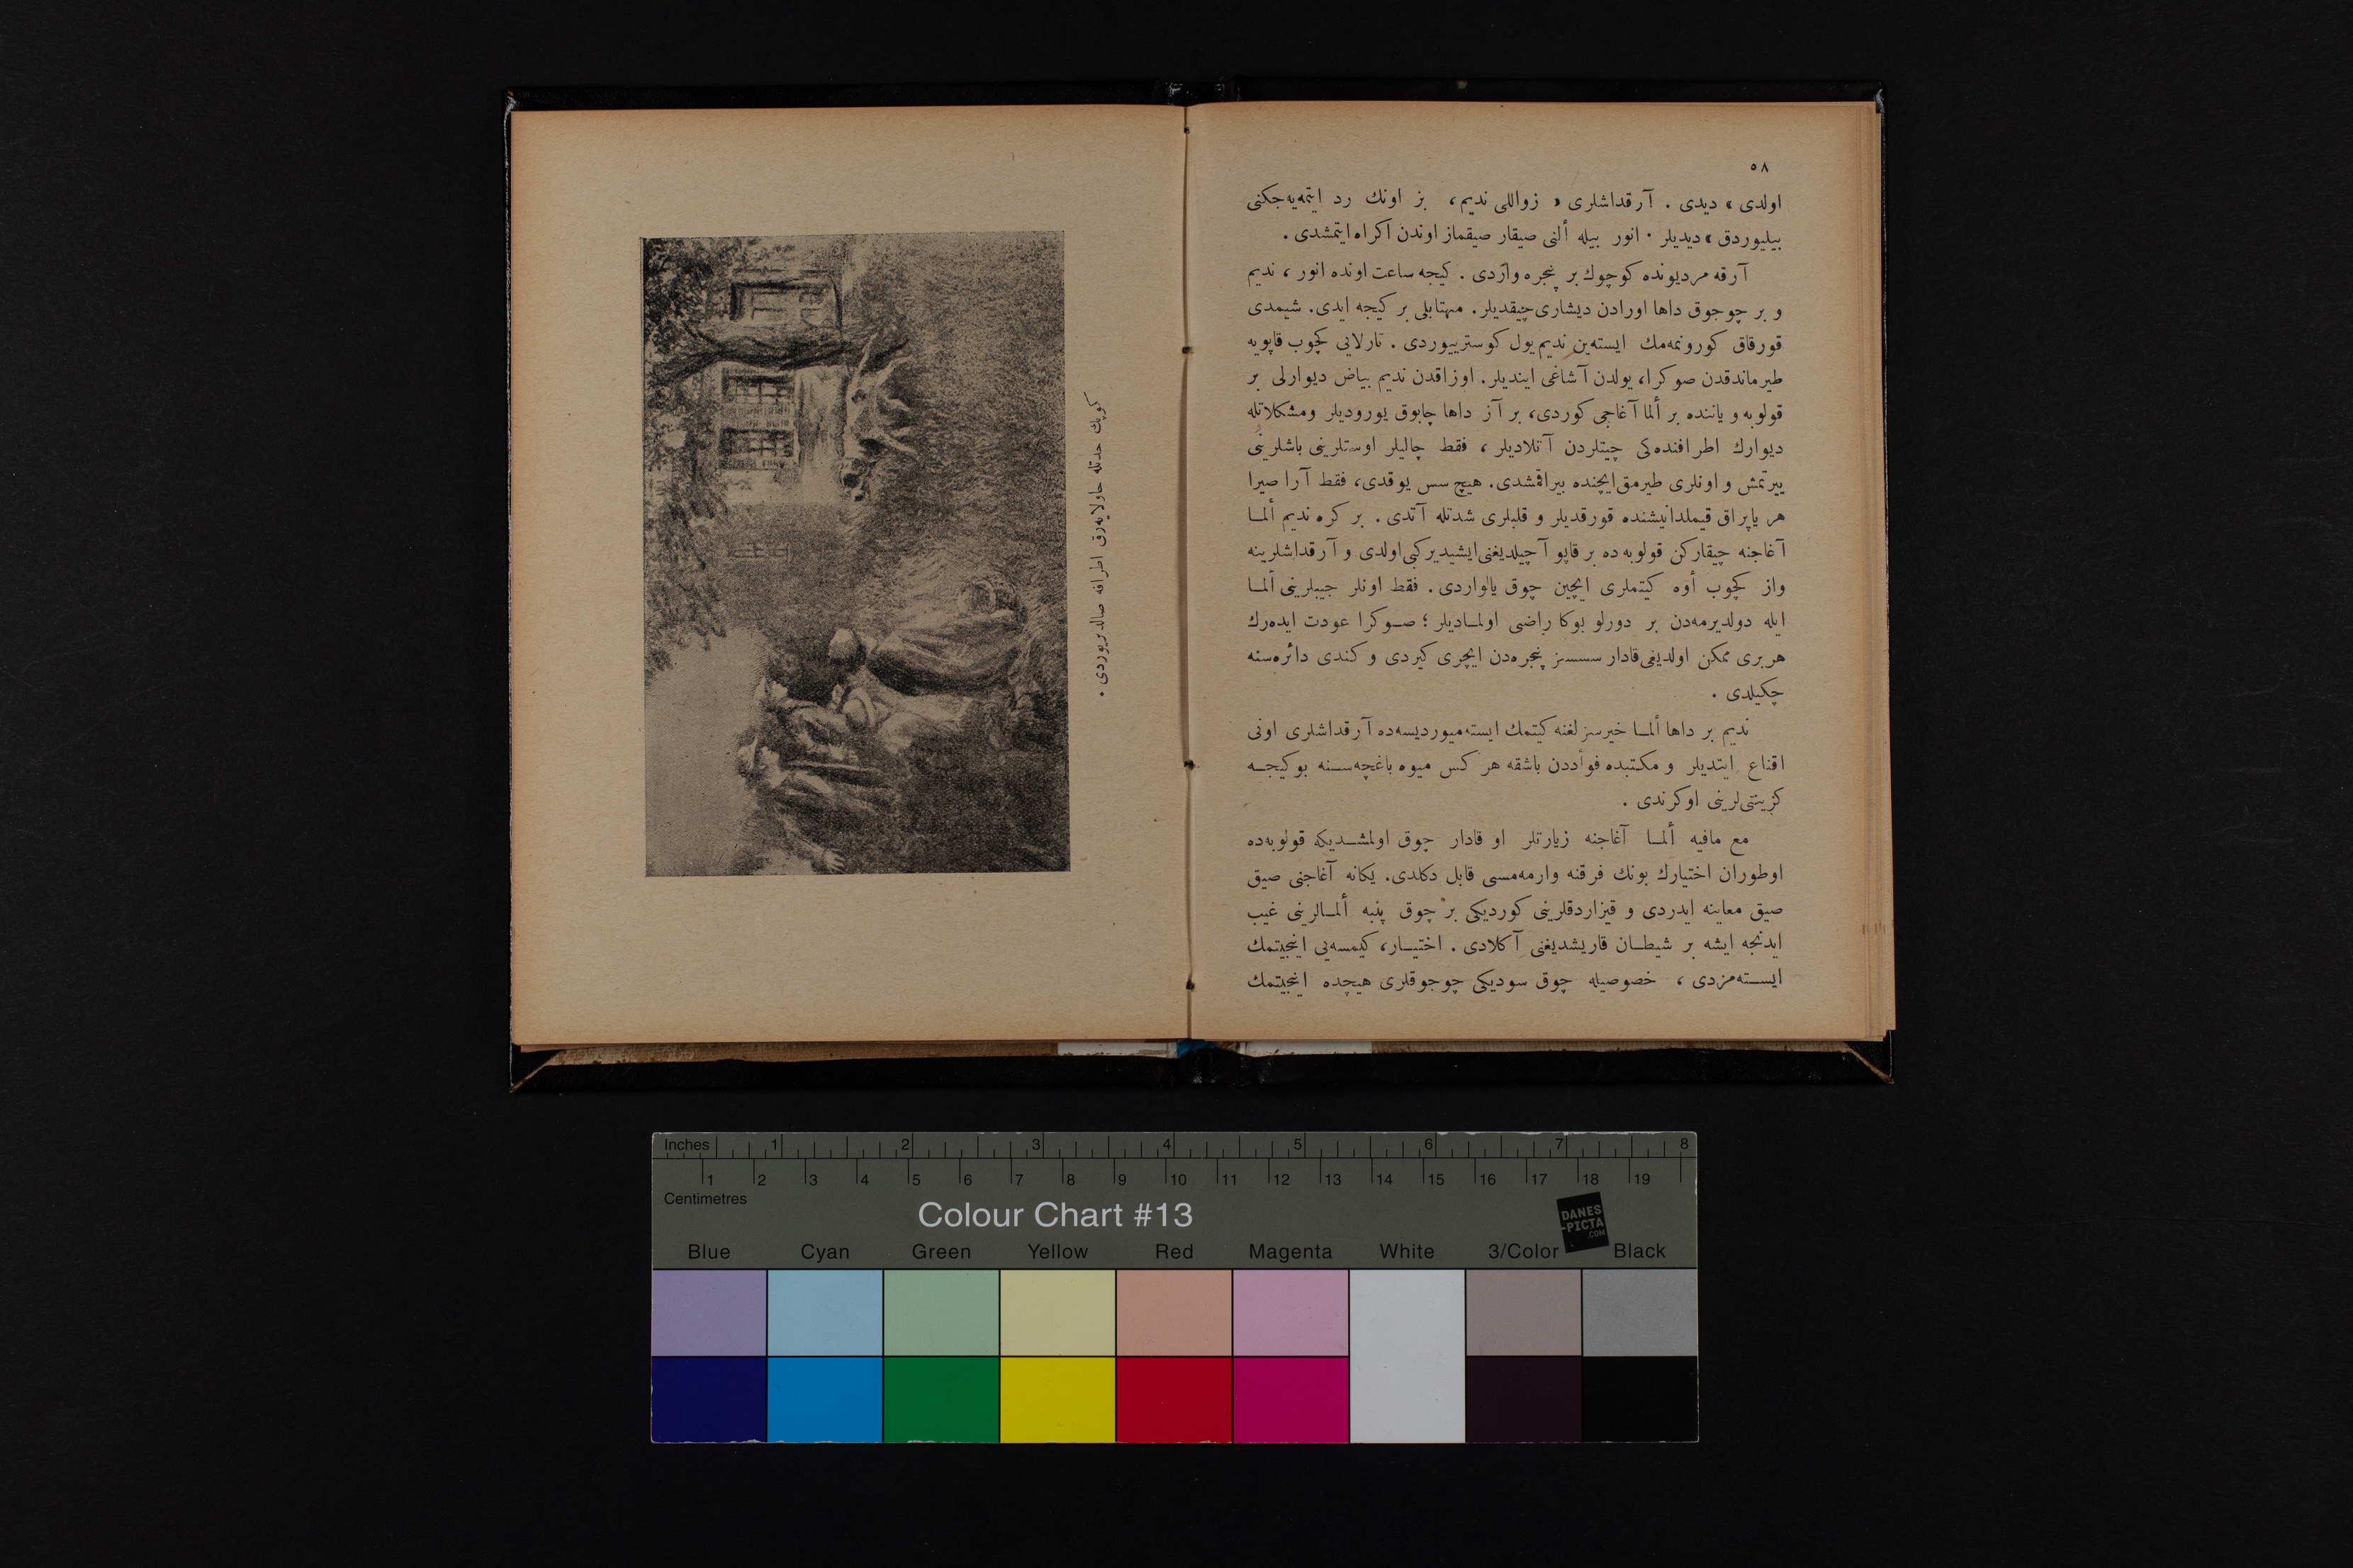 ٥٨
اولدی » دیدی . آرقداشلری « زواللی ندیم ، بز اونك رد ایتمه‌یه‌جكنی
بیلیوردق » دیدیلر . انور بیله ألنی صیقار صیقماز اوندن اكراه ایتمشدی .
آرقه مردیونده كوچوك بر پنجره واردی . كیجه ساعت اونده انور ، ندیم
و بر چوجوق داها اورادن دیشاری چیقدیلر . مهتابلی بر كیجه ایدی . شیمدی
قورقاق كورونمه‌مك ایسته‌ین ندیم یول كوسترییوردی . تارلایی كچوب قاپویه
طیرماندقدن صوكرا ، یولدن آشاغی ایندیلر . اوزاقدن ندیم بیاض دیوارلی بر
قولوبه و یاننده بر ألما آغاجی كوردی ، بر آز داها چابوق یورودیلر ومشكلاتله
دیوارك اطرافنده‌كی چیتلردن آتلادیلر ، فقط چالیلر اوستلرینی باشلرینی
ییرتمش و اونلری طیرمق ایچنده بیراقمشدی . هیچ سس یوقدی ، فقط آرا صیرا
هر یاپراق قیملدانیشنده قورقدیلر و قلبلری شدتله آتدی . بر كره ندیم ألمـا
آغاجنه چیقاركن قولوبه‌ده بر قاپو آچیلدیغنی ایشیدیر كبی اولدی و آرقداشلرینه
واز كچوب أوه كیتملری ایچین چوق یالواردی . فقط اونلر جیبلرینی ألمـا
ایله دولدیرمه‌دن بر دورلو بوكا راضی اولمـادیلر ؛ صـوكرا عودت ایده‌رك
هربری ممكن اولدیغی قادار سسسز پنجره‌دن ایچری كیردی و كندی دائره‌سنه
چكیلدی .
ندیم بر داها ألمـا خیرسزلغنه كیتمك ایسته‌میوردیسه‌ده آرقداشلری اونی
اقناع ایتدیلر و مكتبده فوأددن باشقه هر كس میوه باغچه‌سـنه بو كیجـه
كزینتی‌لرینی اوكرندی .
مع مافیه ألمـا آغاجنه زیارتلر او قادار چوق اولمشـدیكه قولوبه‌ده
اوطوران اختیارك بونك فرقنه وارمه‌مسی قابل دكلدی . یكانه آغاجنی صیق
صیق معاینه ایدردی و قیزاردقلرینی كوردیكی بر چوق پنبه ألمـالرینی غیب
ایدنجه ایشه بر شیطـان قاریشدیغنی آكلادی . اختیـار ، كیمسه‌یی اینجیتمك
ایسـته‌مزدی ، خصوصیله چوق سودیكی چوجوقلری هیچده اینجیتمك
كوپك حدتله حاولایه‌رق اطرافه صالدیرییوردی .
Inches 1 2 3 4 5 6 7 8
1 2 3 4 5 6 7 8 9 10 11 12 13 14 15 16 17 18 19
Centimetres
Colour Chart #13
DANES
-PICTA
.COM
Blue Cyan Green Yellow Red Magenta White 3/Color Black